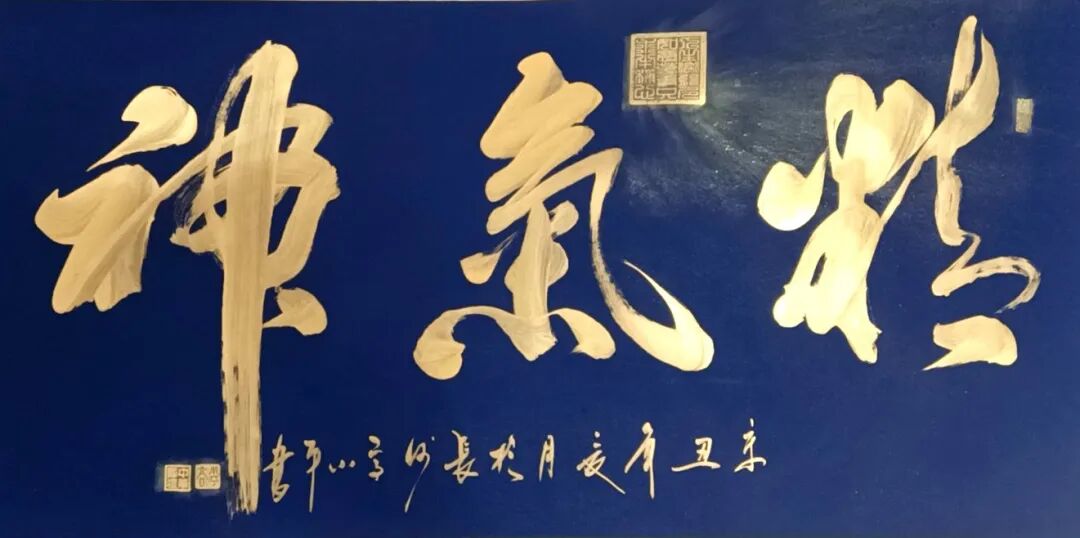 精氣神
辛丑年亥月於長沙高小平書